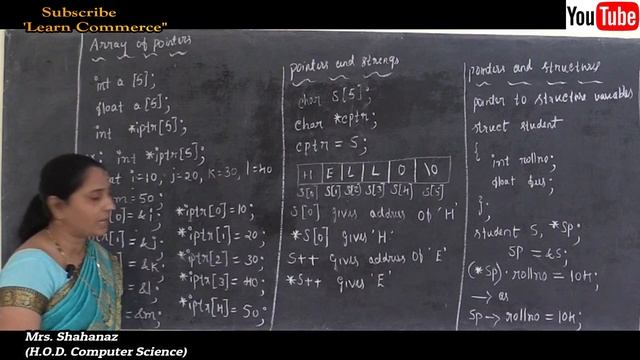 Subscribe
'Learn Commerce"
You Tube
Array of pointers
int a [5];
float a[5];
int *iptr[5];
int *iptr[5];
i=10, j=20, K=30, l=40
m=50;
[0]=&i; *iptr[0]=10;
[1]=&j; *iptr[1]=20;
=&K; *iptr[2]=30;
=&l; *iptr[3]=40;
=&m; *iptr[4]=50;
pointers and strings
char S[5];
char *cptr;
cptr = S;
H E L L O \0
S[0] S[1] S[2] S[3] S[4] S[5]
S[0] gives address of 'H'
*S[0] gives 'H'
S++ gives address of 'E'
*S++ gives 'E'
pointers and structure
pointer to structure variables
struct student
{
int rollno;
float fees;
};
student S, *Sp;
SP = &S;
(*Sp). rollno = 104;
→ or
SP → rollno = 104;
Mrs. Shahanaz
(H.O.D. Computer Science)